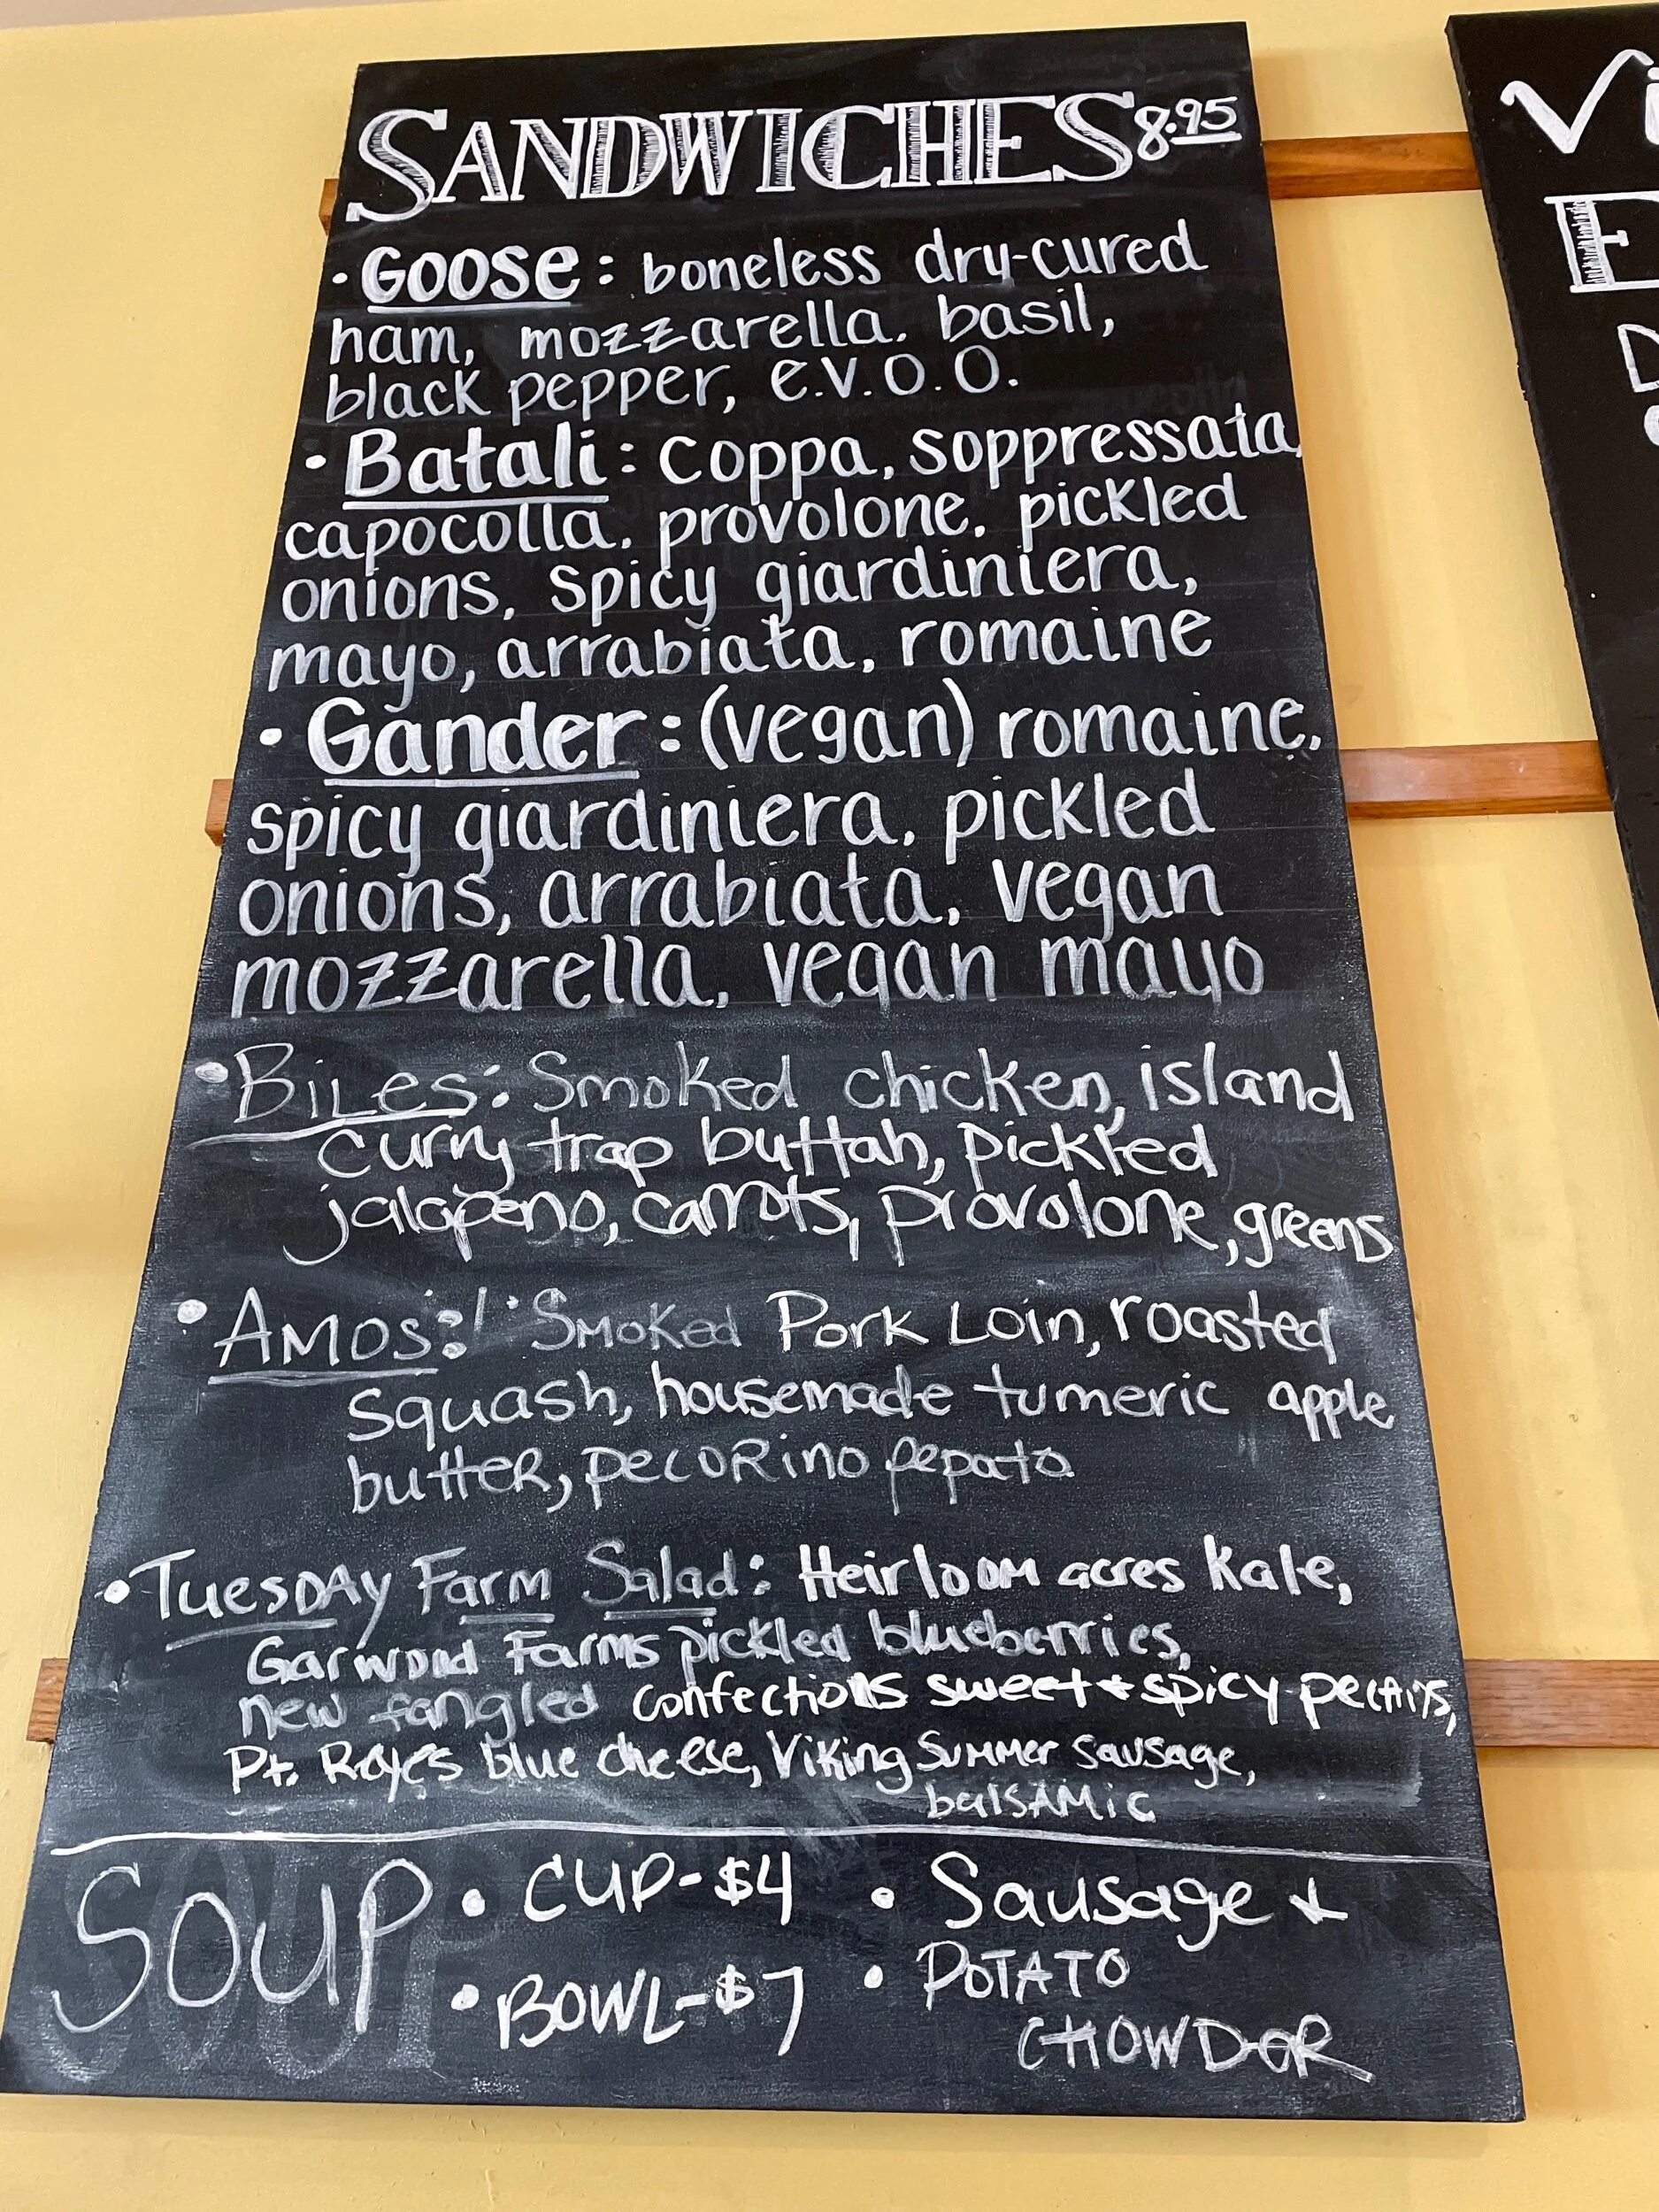 SANDWICHES 8.95
• Goose: boneless dry-cured
ham, mozzarella, basil,
black pepper, e.v.o.o.
• Batali: coppa, soppressata,
capocolla, provolone, pickled
onions, spicy giardiniera,
mayo, arrabiata, romaine
• Gander: (vegan) romaine,
spicy giardiniera, pickled
onions, arrabiata, vegan
mozzarella, vegan mayo
• Biles: Smoked chicken, island
curry trap buttah, pickled
jalapeno, carrots, provolone, greens
• Amos: Smoked Pork Loin, roasted
squash, housemade tumeric apple
butter, pecorino pepato
• Tuesday Farm Salad: Heirloom acres kale,
Garwood Farms pickled blueberries,
new fangled confections sweet + spicy pecans,
Pt. Reyes blue cheese, Viking Summer sausage,
balsamic
SOUP • CUP-$4 • Sausage +
• BOWL-$7 • POTATO
CHOWDER
Vi
E
D